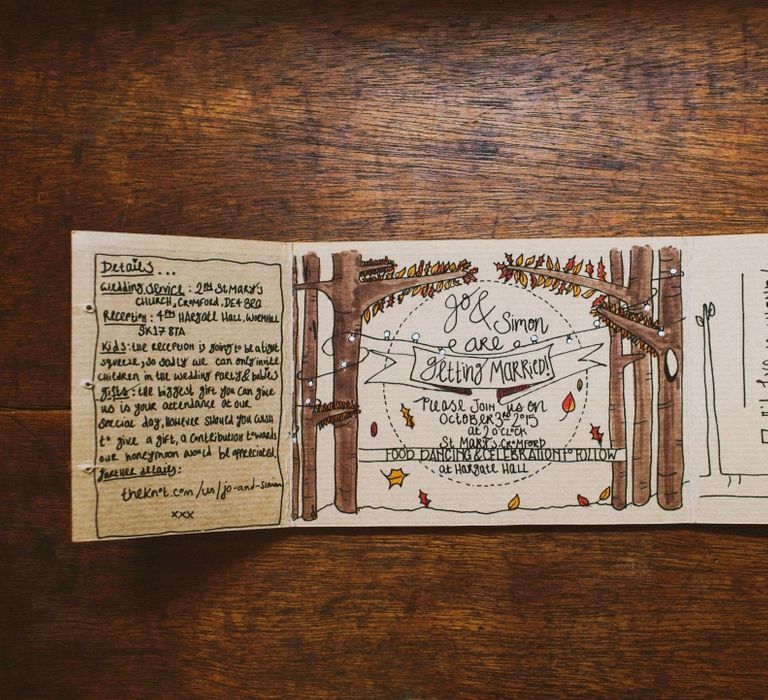 Details...
Wedding Service : 2PM St Mary's
Church, Cromford, DE4 3RQ
Reception : 4PM Hargate Hall, Wormhill
SK17 8TA
Kids: the reception is going to be a tight
squeeze, so sadly we can only invite
children in the wedding party & babies
Gifts: the biggest gift you can give
us is your attendance at our
special day, however should you wish
to give a gift, a contribution towards
our honeymoon would be appreciated.
Further details:
theknot.com/us/jo-and-simon
xxx
Jo &
Simon
are
getting MARRIED!
Please Join us on
October 3rd 2015
at 2 o'clock
St Mary's, Cromford
FOOD, DANCING & CELEBRATION to FOLLOW
at Hargate Hall